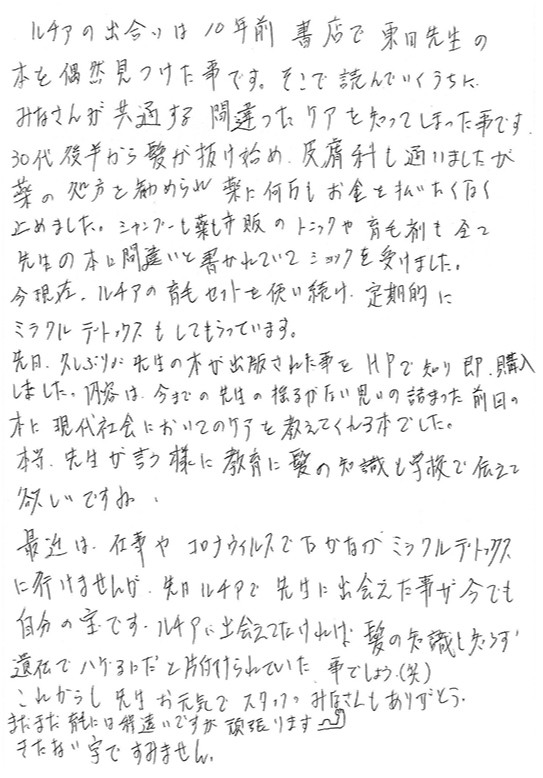 ルチアの出合いは10年前 書店で東田先生の
本を偶然見つけた事です。そこで読んでいくうちに
みなさんが共通する間違ったケアを知ってしまった事です
30代後半から髪が抜け始め、皮膚科も通いましたが
薬の処方を勧められ薬に何万もお金を払いたくなく
止めました。シャンプーも薬も市販のトニックや育毛剤も全て
先生の本に間違いと書かれていてショックを受けました。
今現在、ルチアの育毛セットを使い続け、定期的に
ミラクルデトックスもしてもらっています。
先日、久しぶりに先生の本が出版された事をHPで知り即、購入
しました。内容は、今までの先生の揺るがない思いの詰まった前回の
本に現代社会においてのケアを教えてくれる本でした。
本当、先生が言う様に教育に髪の知識も学校で伝えて
欲しいですね、
最近は、仕事やコロナウィルスでなかなかミラクルデトックス
に行けませんが、先日ルチアで先生に出会えた事が今でも
自分の宝です。ルチアに出会えてなければ髪の知識も知らず
遺伝でハゲるにだと片付けられていた事でしょう。(笑)
これからも先生お元気でスタッフのみなさんもありがとう。
まだまだ には程遠いですが頑張ります
きたない字ですみません。